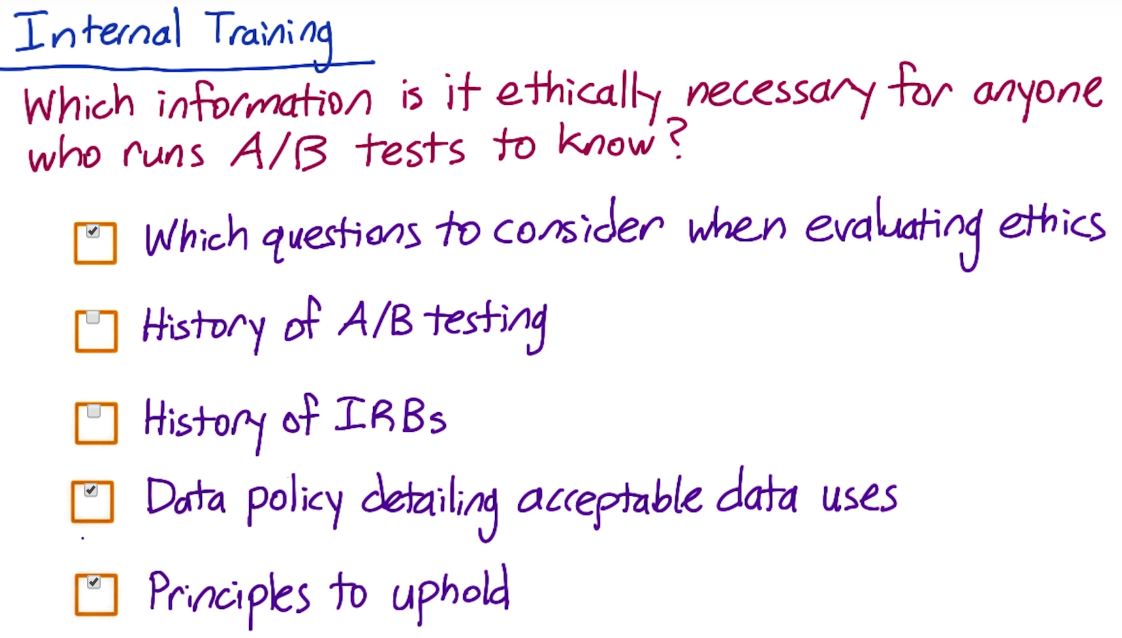 Internal Training
Which information is it ethically necessary for anyone
who runs A/B tests to know?
Which questions to consider when evaluating ethics
History of A/B testing
History of IRBs
Data policy detailing acceptable data uses
Principles to uphold